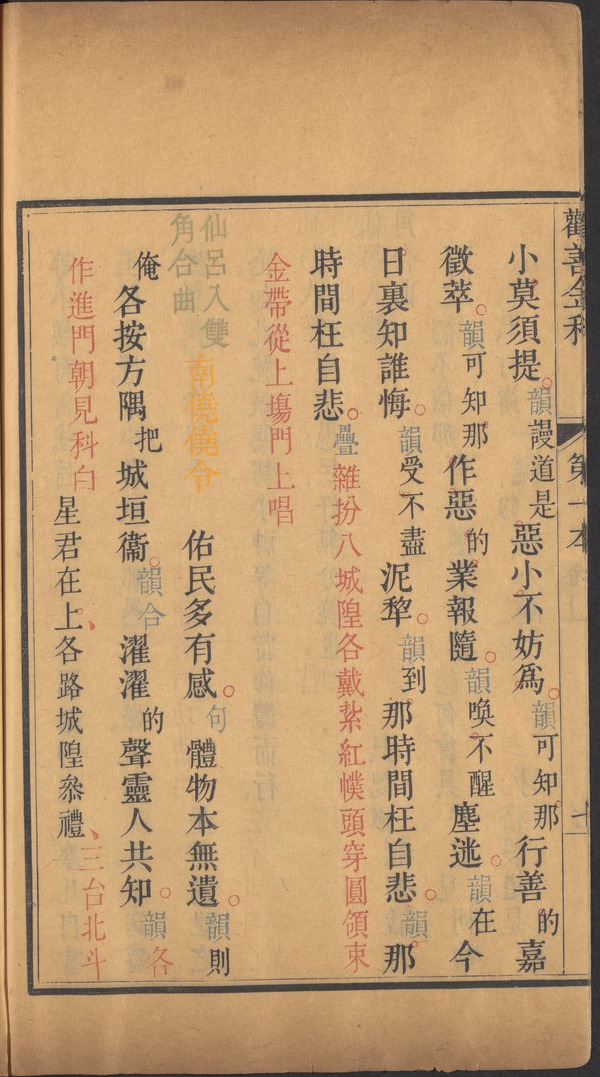 勸善金科
第一本
七
小莫須提韻謾道是惡小不妨為韻可知那行善的嘉
徵萃韻可知那作惡的業報隨韻喚不醒塵迷韻在今
日裏知誰悔韻受不盡泥犂韻到那時間枉自悲韻那
時間枉自悲疊雜扮八城隍各戴紥紅幞頭穿圓領束
金帶從上塲門上唱
仙呂入雙
角合曲
南僥僥令
佑民多有感句體物本無遺韻則
俺各按方隅把城垣衞韻合濯濯的聲靈人共知韻各
作進門朝見科白星君在上各路城隍叅禮三台北斗